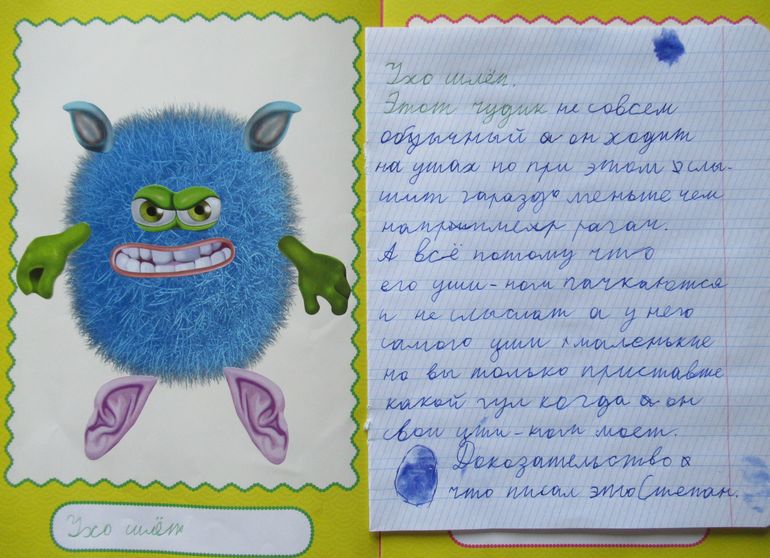 Ухо шлёп.
Этот чудик не совсем
обычный а он ходит
на ушах но при этом слы-
шит гаразда меньше чем
например рагач.
А всё потому что
его уши-ноги пачкаются
и не слышат а у него
самого уши маленькие
но вы только приставте
какой гул когда он
свои уши-ноги моет.
Доказательство
что писал это Степан.
Ухо шлёп